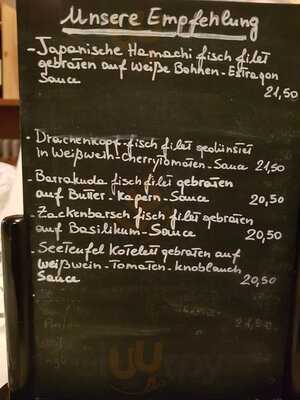 Unsere Empfehlung
- Japanische Hamachi fisch filet
gebraten auf Weiße Bohnen-Estragon
Sauce 21,50
- Drachenkopf-fisch filet gedünstet
in Weißwein-Cherrytomaten-Sauce 21,50
- Barrakuda fisch filet gebraten
auf Butter-Kapern-Sauce 20,50
- Zackenbarsch fisch filet gebraten
auf Basilikum-Sauce 20,50
- Seeteufel Kotelett gebraten auf
Weißwein-Tomaten-Knoblauch
Sauce 20,50